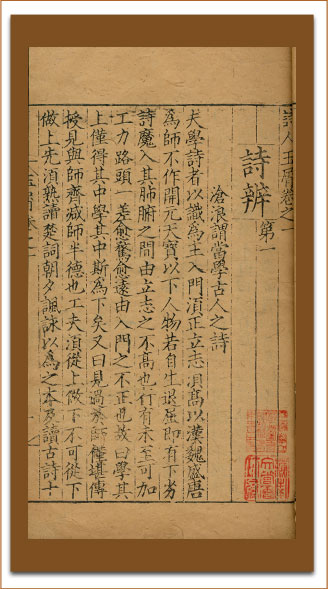 詩人玉屑卷之一
詩辨第一
滄浪謂當學古人之詩
夫學詩者以識為主入門湏正立志湏髙以漢魏盛唐
為師不作開元天寶以下人物若自生退屈即有下劣
詩魔入其肺腑之間由立志之不髙也行有未至可加
工力路頭一差愈騖愈逺由入門之不正也故曰學其
上僅得其中學其中斯為下矣又曰見過扵師僅堪傳
授見與師齊减師半德也工夫湏從上做下不可從下
做上先湏熟讀楚詞朝夕諷詠以為之本及讀古詩十